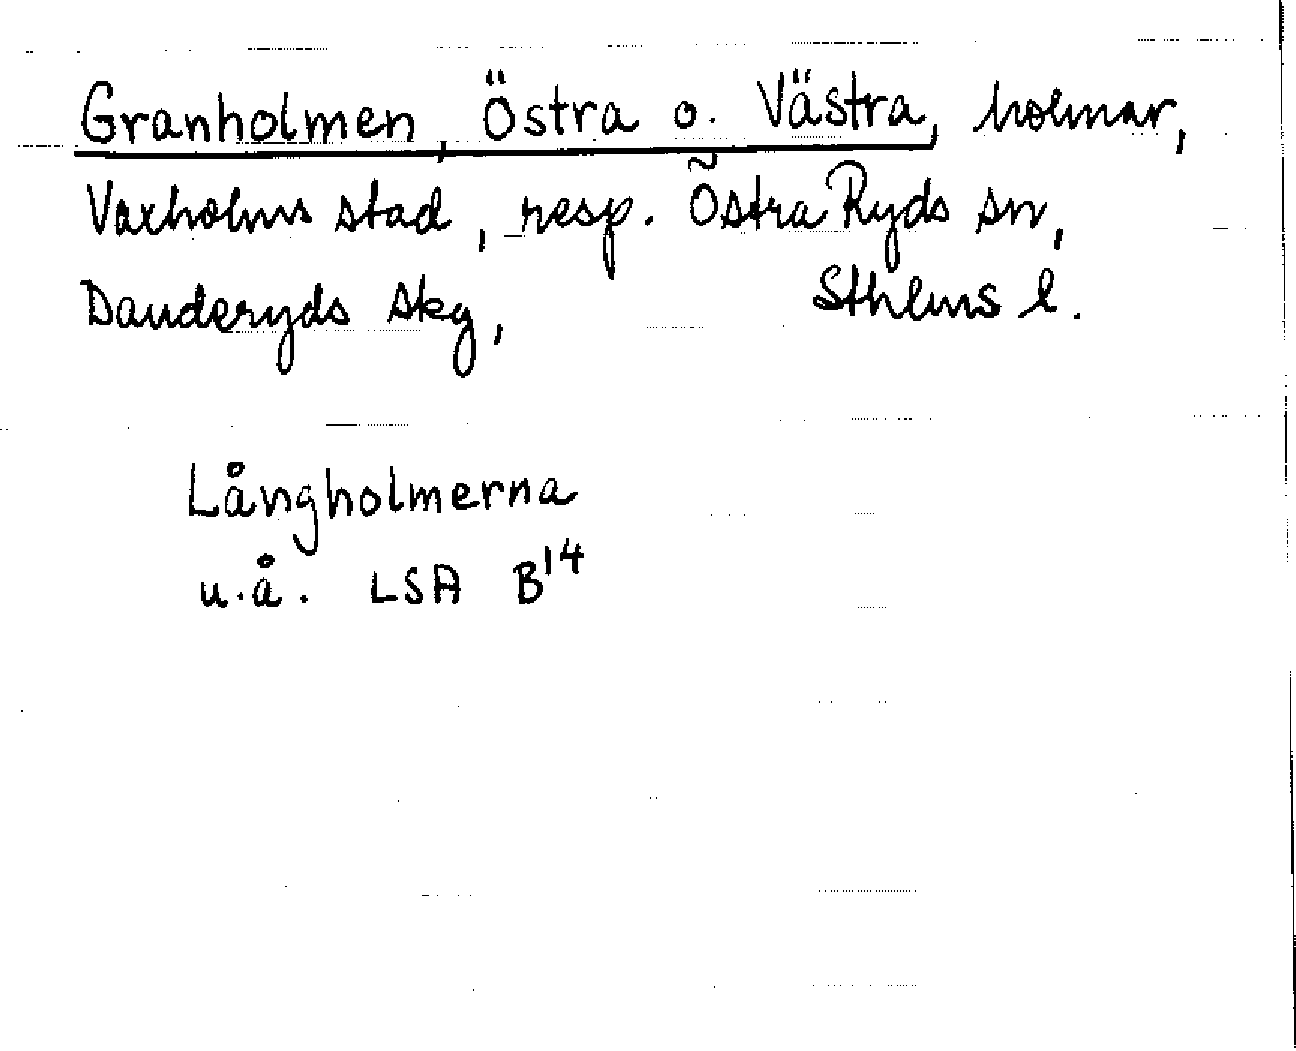 Granholmen, Östra o. Västra, holmar,
Vaxholms stad, resp. Östra Ryds sn,
Danderyds skg, Sthlms l.
Långholmerna
u.å. LSA B14